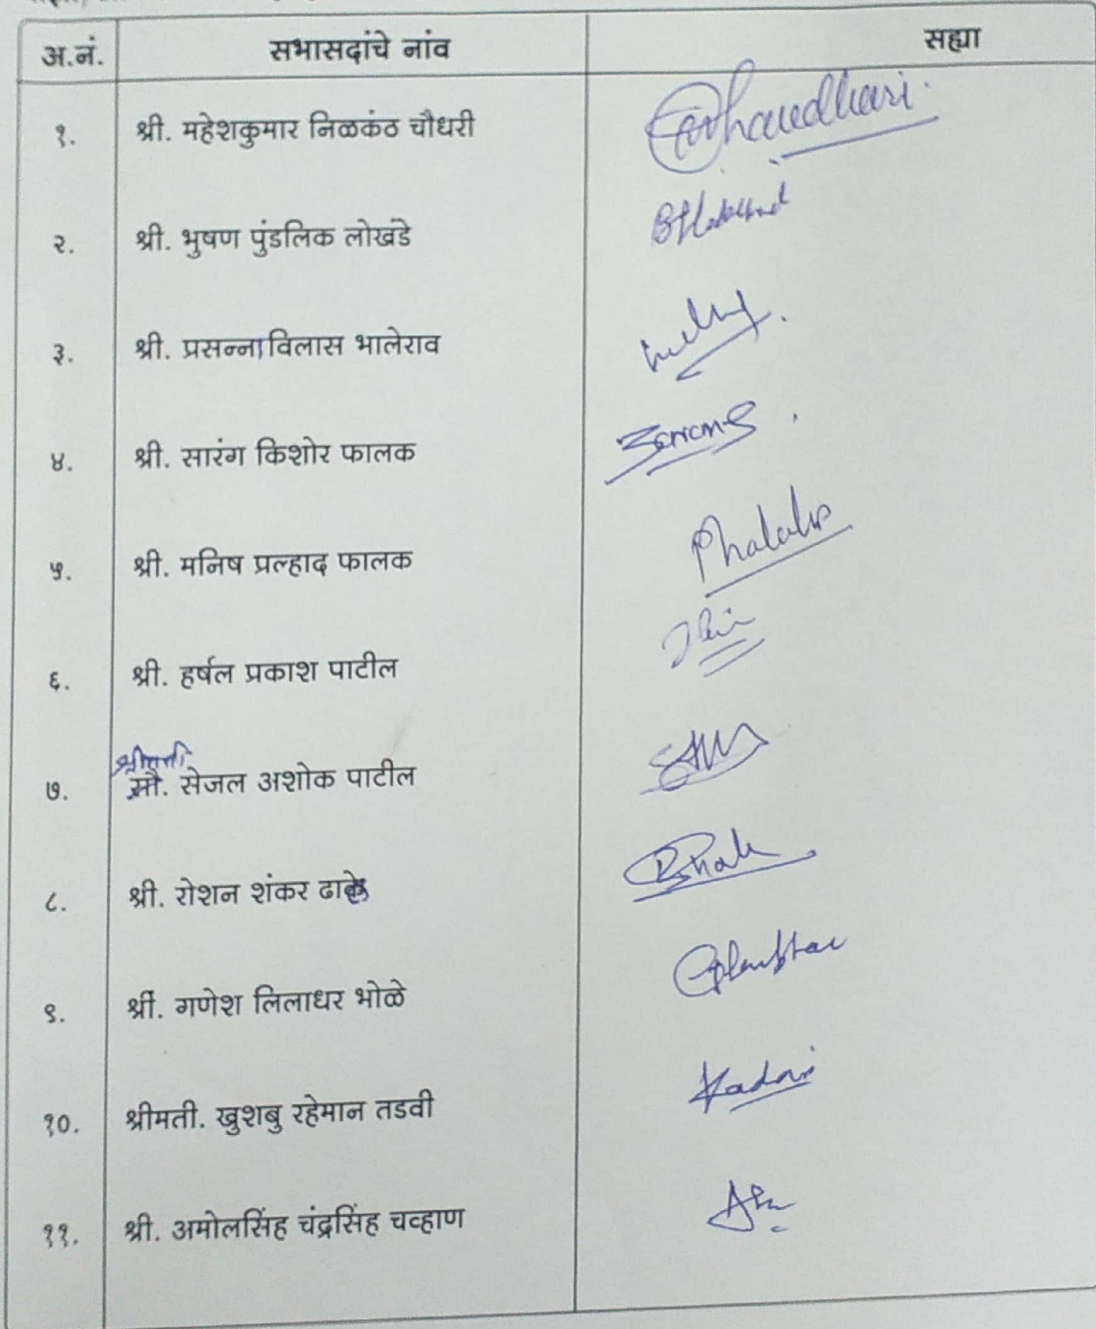 अ.नं. सभासदांचे नांव सह्या
१. श्री. महेशकुमार निळकंठ चौधरी Chaudhari.
२. श्री. भुषण पुंडलिक लोखंडे
३. श्री. प्रसन्ना विलास भालेराव
४. श्री. सारंग किशोर फालक Sarang
५. श्री. मनिष प्रल्हाद फालक Phalak
६. श्री. हर्षल प्रकाश पाटील
श्रीमती
७. सौ. सेजल अशोक पाटील
८. श्री. रोशन शंकर ढाके
९. श्री. गणेश लिलाधर भोळे
१०. श्रीमती. खुशबु रहेमान तडवी
११. श्री. अमोलसिंह चंद्रसिंह चव्हाण